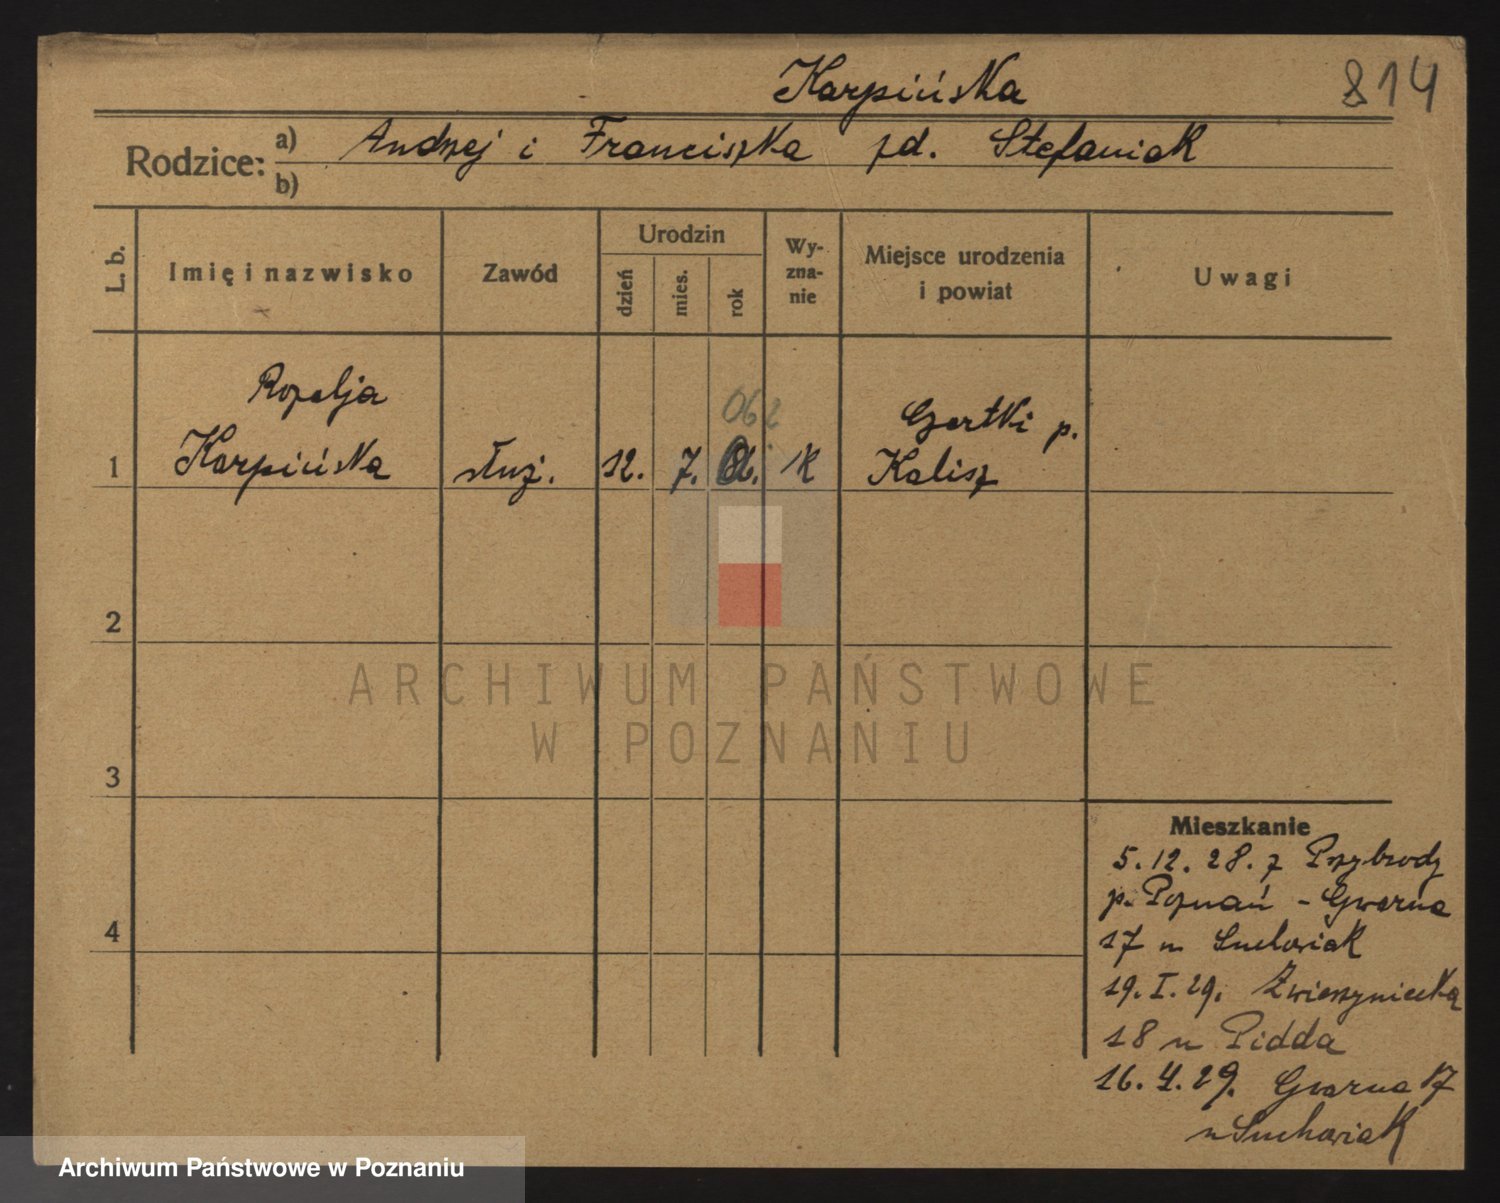 Karpińska
814
Rodzice:
a) Andrzej i Franciszka zd. Stefaniak
b)
L. b.
Imię i nazwisko
Zawód
Urodzin
dzień
mies.
rok
Wy-
zna-
nie
Miejsce urodzenia
i powiat
Uwagi
Rozalja
062
Czartki p.
1 Karpińska służ. 12. 7. K Kalisz
2
3
4
ARCHIWUM PAŃSTWOWE
W POZNANIU
Mieszkanie
5.12.28. z Przybrody
p. Poznań - Gwarna
17 u Suchowiak
19.I.29. Zwierzyniecka
18 u Pidda
16.4.29. Gwarna 17
u Suchowiak
Archiwum Państwowe w Poznaniu